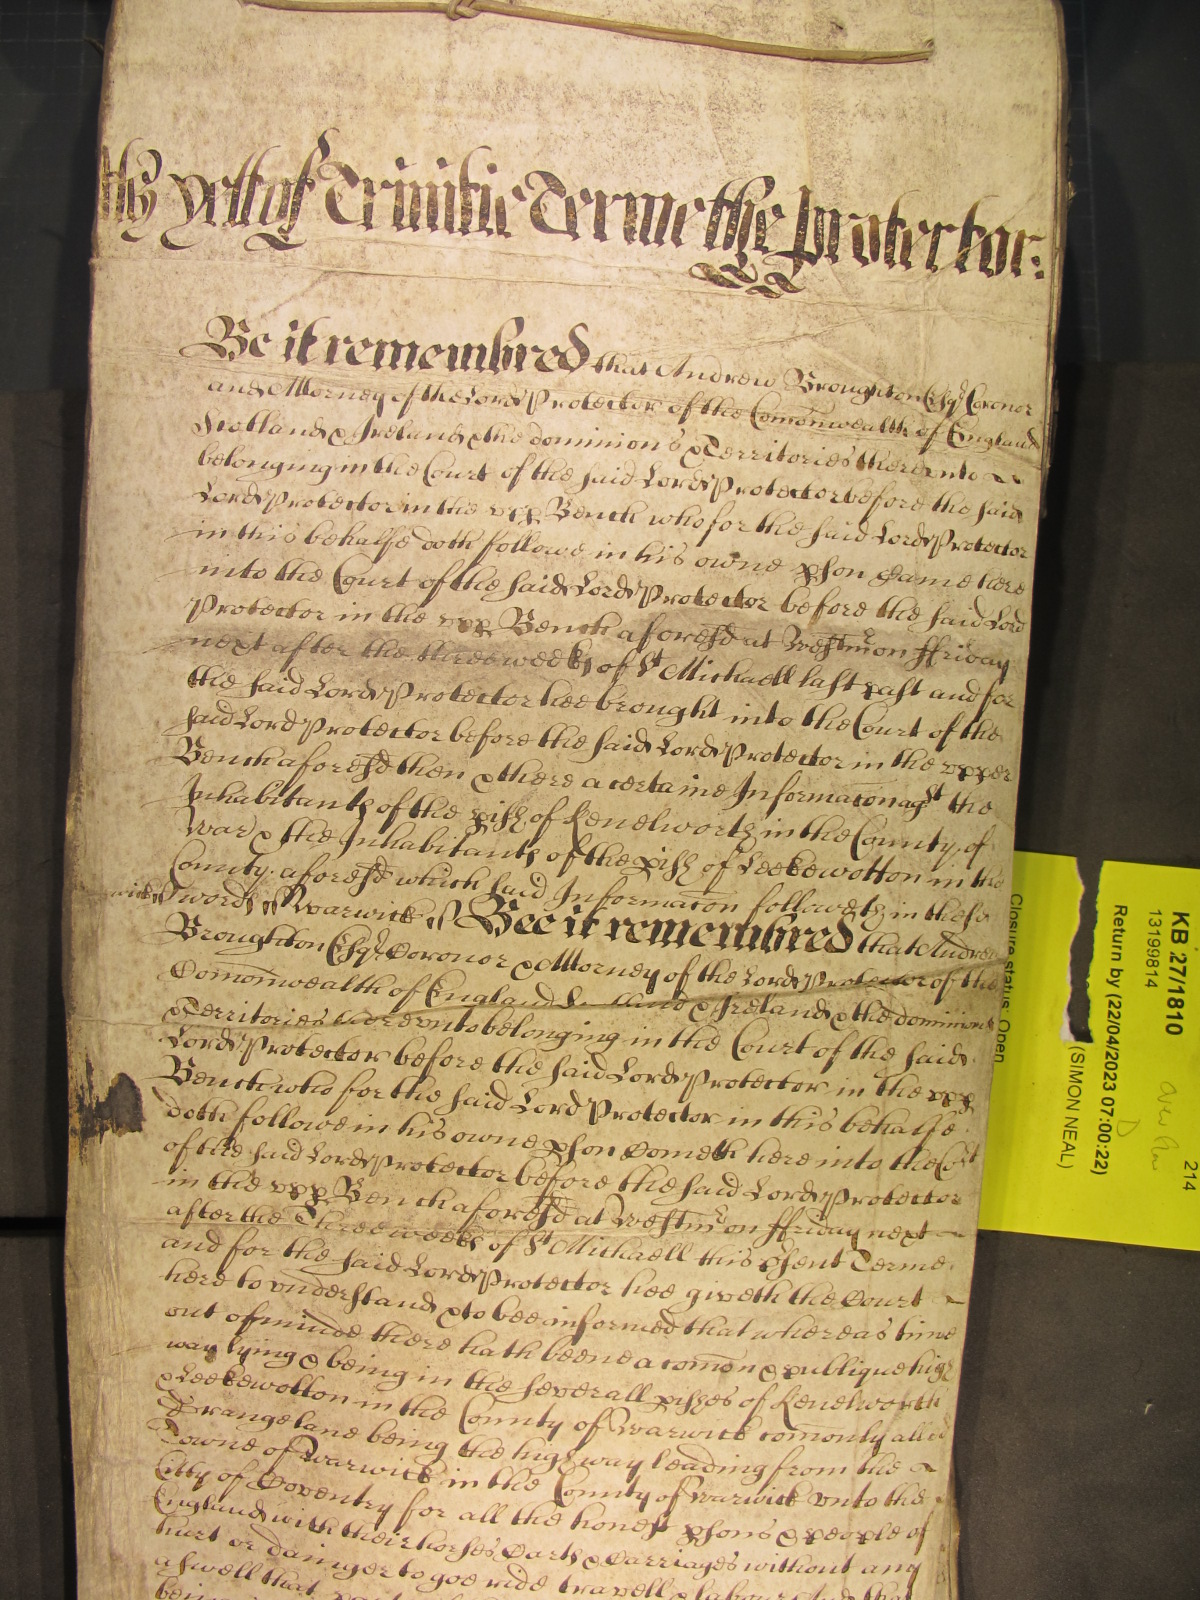 yett of Trinitie Terme the Protector:
Be it remembred that Andrew Broughton Esqr Coronor
and Attorney of the Lord Protector of the Comonwealth of England
Scotland & Ireland & the dominions & Territories thereunto
belonging in the Court of the said Lord Protector before the said
Lord Protector in the upp Bench who for the said Lord Protector
in this behalfe doth followe in his owne pson Came here
into the Court of the said Lord Protector before the said Lord
Protector in the upp Bench aforesd at Westmr on ffriday
next after the three weeks of St Michaell last past and for
the said Lord Protector hee brought into the Court of the
said Lord Protector before the said Lord Protector in the upper
Bench aforesd then & there a certaine Informacon agst the
Inhabitants of the pish of Kenelworth in the County of
War & the Inhabitants of the pish of Leekewotton in the
County aforesd which said Informacon followeth in these
words Warwick Bee it remembred that Andrew
Broughton Esqr Coronor & Attorney of the Lord Protector of the
Comonwealth of England Scotland & Ireland & the dominions
& Territories thereunto belonging in the Court of the said
Lord Protector before the said Lord Protector in the upp
Bench who for the said Lord Protector in this behalfe
doth followe in his owne pson Cometh here into the Cort
of the said Lord Protector before the said Lord Protector
in the upp Bench aforesd at Westmr on ffriday next
after the Three weeks of St Michaell this psent Terme
and for the said Lord Protector hee giveth the Court
here to understand & to bee informed that whereas time
out of minde there hath beene a comon & publique high
way lying & being in the severall pishes of Kenelworth
& Leekewotton in the County of Warwick comonly alled
lane being the high way leading from the
Towne of Warwick in the County of Warwick unto the
Citty of Coventry for all the honest psons & people of
England with their horses Carts & Carriages without any
hurt or dainger to goe ride travell & labour And that
aswell that
being
KB 27/1810
13199814
Closure status: Open
Return by (22/04/2023 07:00:22)
(SIMON NEAL)
D
214